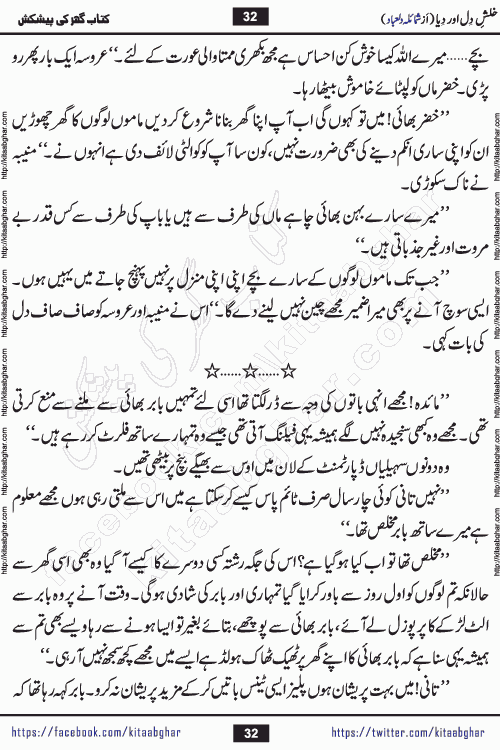 خلشِ دِل اور دِیا (از شمائلہ دلعباد)
32
کتاب گھر کی پیشکش
بچے......میرے اللہ کیسا خوش کن احساس ہے مجھ بکھری ممتا والی عورت کے لئے۔“ عروسہ ایک بار پھر رو
پڑی۔ خضر ماں کو لپٹائے خاموش بیٹھا رہا۔
”خضر بھائی! میں تو کہوں گی اب آپ اپنا گھر بنانا شروع کر دیں ماموں لوگوں کا گھر چھوڑیں
ان کو اپنی ساری انکم دینے کی بھی ضرورت نہیں، کون سا آپ کو کوالٹی لائف دی ہے انہوں نے۔“ منیبہ
نے ناک سکوڑی۔
”میرے سارے بہن بھائی چاہے ماں کی طرف سے ہیں یا باپ کی طرف سے کس قدر بے
مروت اور غیر جذباتی ہیں۔“
”جب تک ماموں لوگوں کے سارے بچے اپنی اپنی منزل پر نہیں پہنچ جاتے میں یہیں ہوں۔
ایسی سوچ آنے پر بھی میرا ضمیر مجھے چین نہیں لینے دے گا۔“ اس نے منیبہ اور عروسہ کو صاف صاف دل
کی بات کہی۔
☆......☆......☆
”مائدہ! مجھے انہی باتوں کی وجہ سے ڈر لگتا تھا اسی لئے تمہیں بابر بھائی سے ملنے سے منع کرتی
تھی۔ مجھے وہ کبھی سنجیدہ نہیں لگے ہمیشہ یہی فیلنگ آتی تھی جیسے وہ تمہارے ساتھ فلرٹ کر رہے ہیں۔“
وہ دونوں سہیلیاں ڈپارٹمنٹ کے لان میں اوس سے بھیگے بنچ پر بیٹھی تھیں۔
”نہیں تانی کوئی چار سال صرف ٹائم پاس کیسے کر سکتا ہے میں اس سے ملتی رہی ہوں مجھے معلوم
ہے میرے ساتھ بابر مخلص تھا۔“
”مخلص تھا تو اب کیا ہو گیا ہے؟ اس کی جگہ رشتہ کسی دوسرے کا کیسے آ گیا وہ بھی اسی گھر سے
حالانکہ تم لوگوں کو اول روز سے باور کرایا گیا تمہاری اور بابر کی شادی ہو گی۔ وقت آنے پر وہ بابر سے
الٹ لڑکے کا پرپوزل لے آئے، بابر بھائی سے پوچھے، بتائے بغیر تو ایسا ہونے سے رہا ویسے بھی تم سے
ہمیشہ یہی سنا ہے کہ بابر بھائی کا اپنے گھر پر ٹھیک ٹھاک ہولڈ ہے ایسے میں مجھے کچھ سمجھ نہیں آ رہی۔“
”تانی! میں بہت پریشان ہوں پلیز ایسی ٹینس باتیں کر کے مزید پریشان نہ کرو۔ بابر کہہ رہا تھا کہ
https://facebook.com/kitaabghar
32
https://twitter.com/kitaabghar
http://kitaabghar.com
facebook.com/kitaabghar
kitaabghar.com